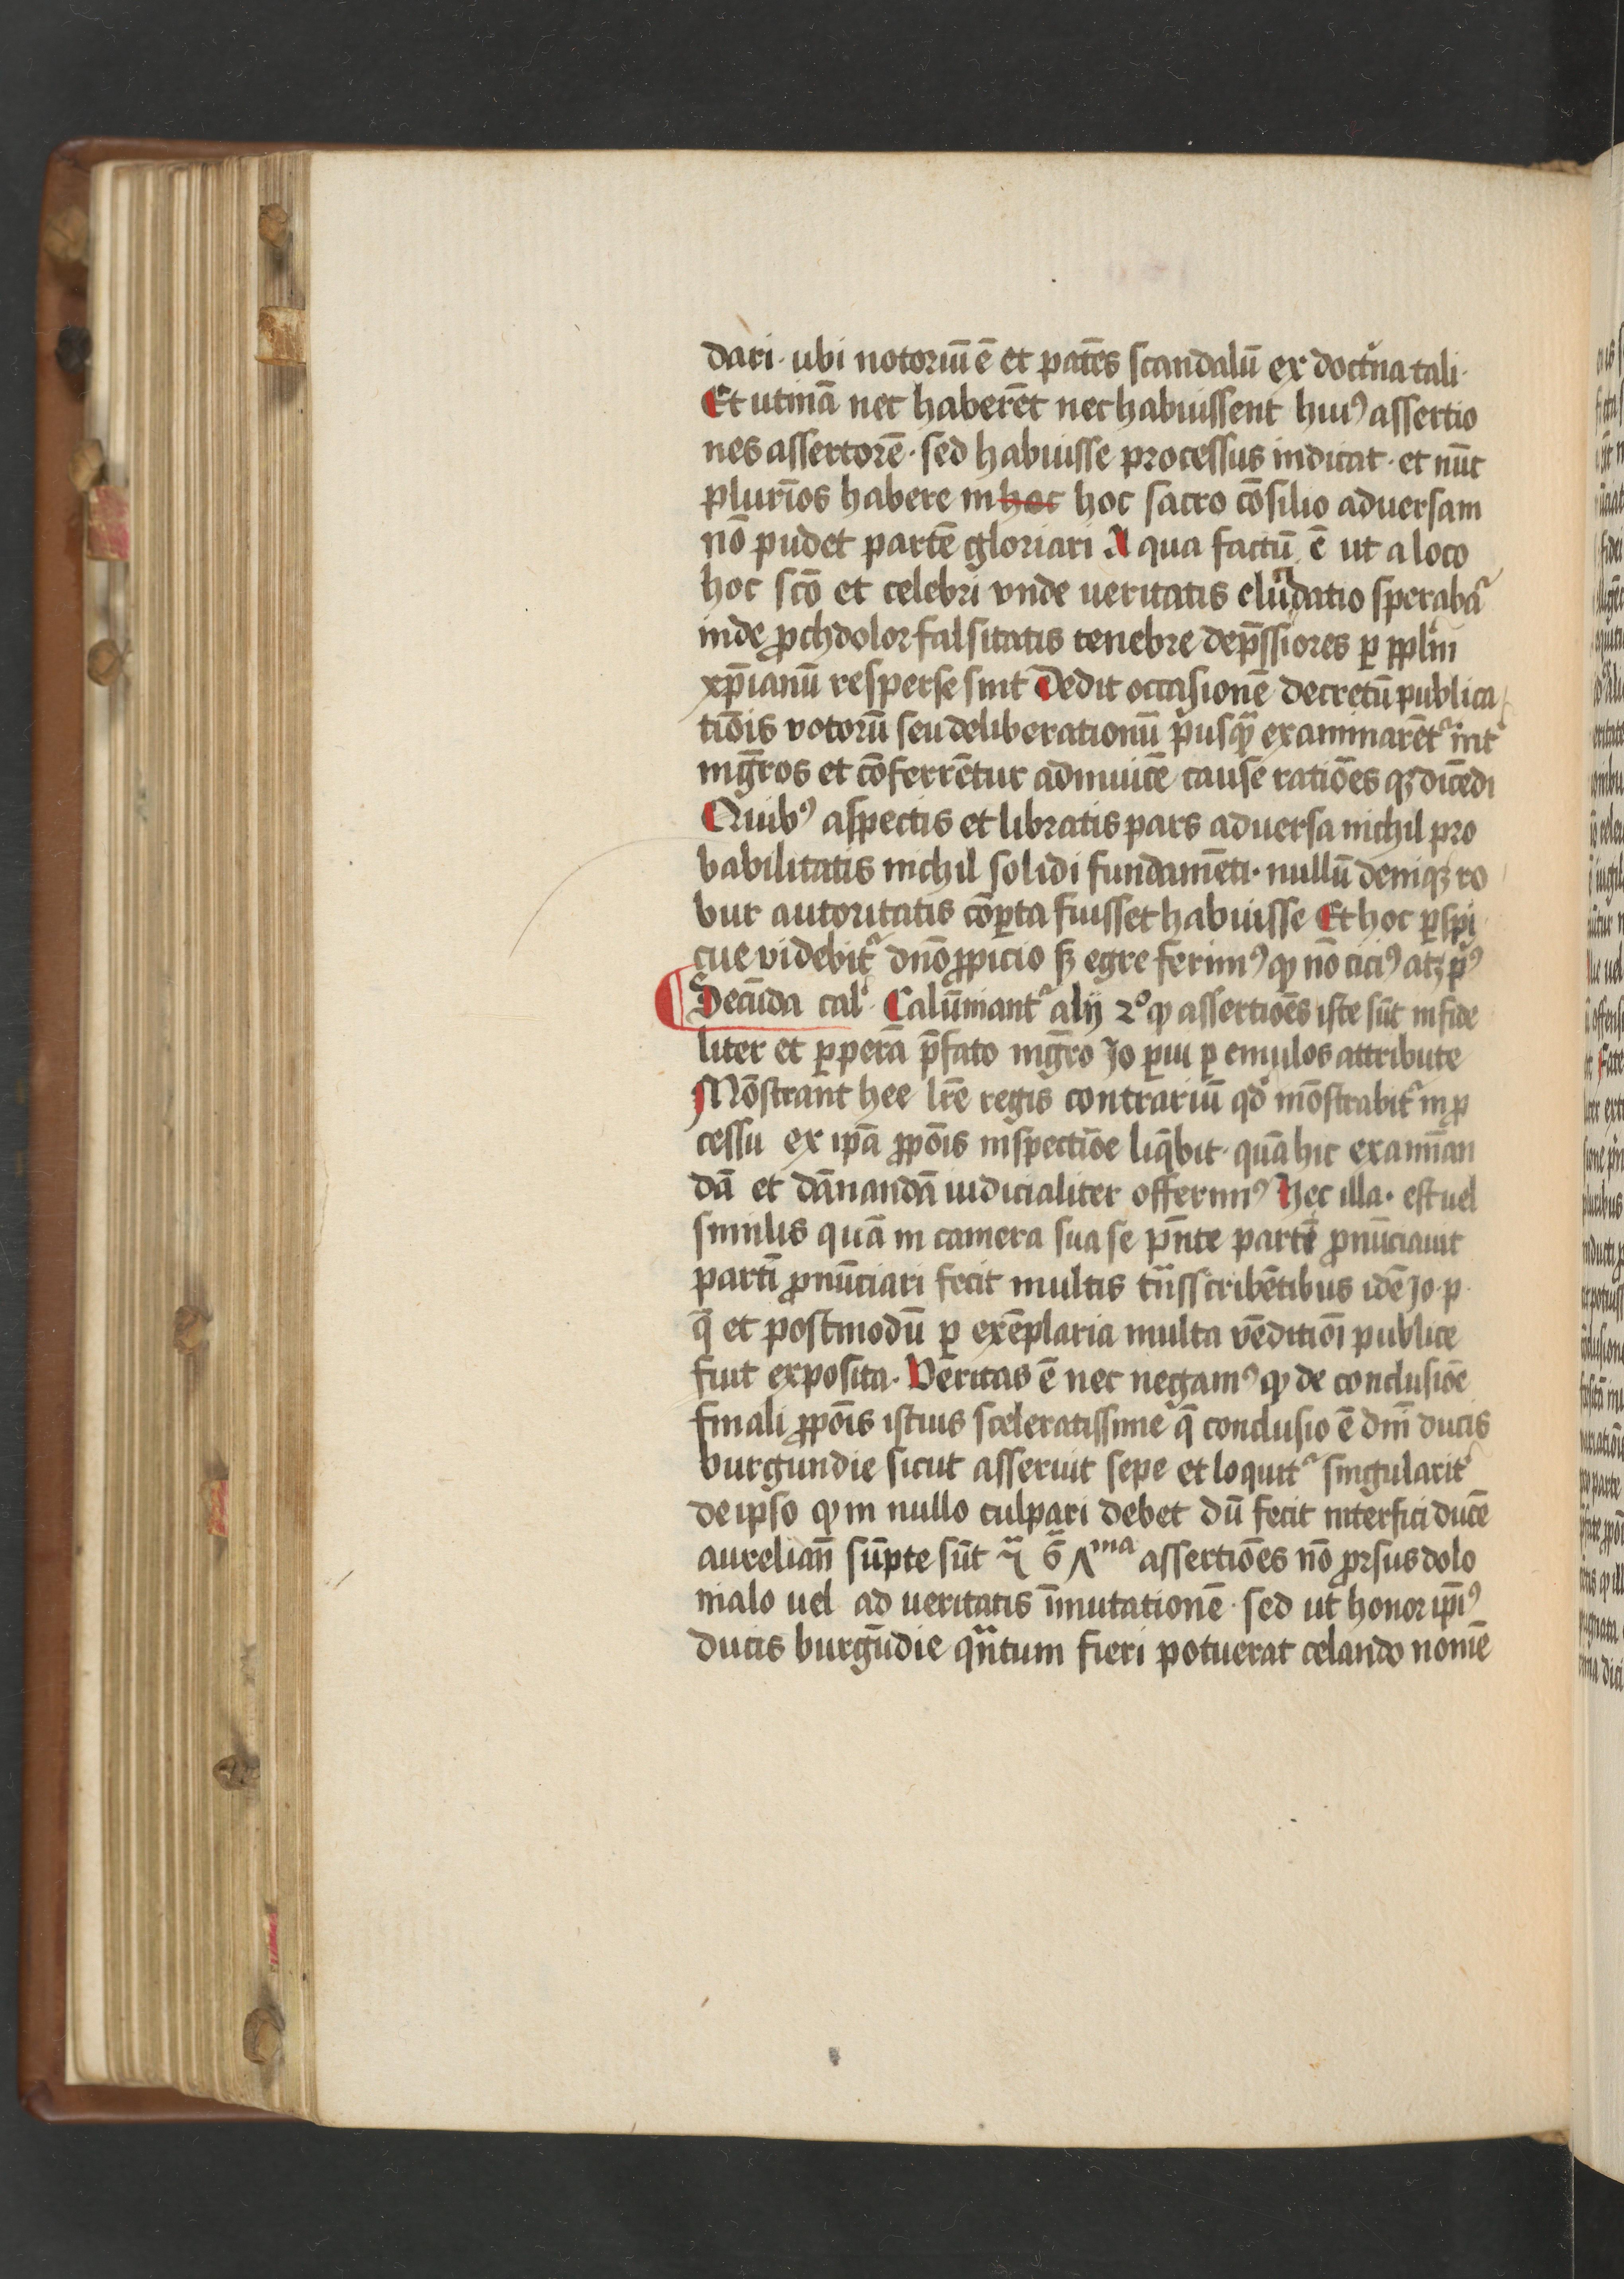 dari · ubi notoriū ē et patēs scandalū ex doctͥna tali ·
Et utinā nec haberēt nec habuissent huiꝰ assertio
nes assertorē · sed habuisse processus indicat · et nūc
plurīos habere in hoc hoc sacro cōsilio aduersam
nō pudet partē gloriari A qua factū ē ut a loco
hoc scō et celebri vnde ueritatis elucidatio sperabaᷣ
inde ꝓchdolor falsitatis tenebre dep̄ssiores ꝑ pplm̄
xp̄ianū resperse sint Dedit occasionē decretū publica
tiōis votorū seu deliberationū pͥusqᷓ examinarētᷣ int̕
mgr̄os et cōferrētur adinuicē cause ratiōes qꝫ dicēdi
Quibꝰ aspectis et libratis pars aduersa nichil pro
babilitatis nichil solidi fundamēti · nullū deniqꝫ ro
bur autoritatis cōꝑta fuisset habuisse Et hoc ꝑspi
cue videbitᷣ dn̄o ꝓpicio sꝫ egre ferimꝰ ꝙ nō ciciꝰ atqꝫ pͥꝰ
Secūda cal̕ · Calūniantᷣ alij 2º ꝙ assertiōes iste sūt infide
liter et ꝑperā p̄fato mgr̄o Jo ꝑui ꝑ emulos attribute
Mōstrant hee lr̄e regis contrariū qd̕ mōstrabitᷣ in ꝓ
cessu ex ip̄a ꝓpōis inspectiōe liq̄bit · quā hic examīan
dā et dānandā iudicialiter offerimꝰ Hec illa · est uel
similis quā in camera sua se pn̄te partī ꝓnūciauit
partī ꝓnūciari fecit multis tᷓnsscribētibus idē Jo · p ·
q̄ et postmodū ꝑ exēplaria multa vēditiōi publice
fuit exposita · Veritas ē nec negamꝰ ꝙ de conclusiōe
finali ꝓpōis istius sceleratissime q̄ conclusio ē dn̄i ducis
burgundie sicut asseruit sepe et loquitᷣ singularit̕
de ipso ꝙ in nullo culpari debet dū fecit interfici ducē
aurelian̄ sūpte sūt assertiōes nō ꝓrsus dolo
malo uel ad ueritatis īmutationē · sed ut honor ip̄iꝰ
ducis burgūdie qᷓntum fieri potuerat celando nomē